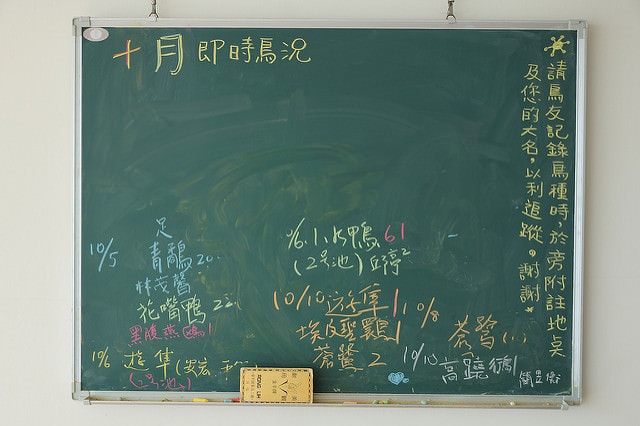 十月即時鳥況
請鳥友記錄鳥種時,於旁附註地点
及您的大名,以利追蹤。謝謝
10/5
足
青鷸 20
林茂馨
花嘴鴨 2
黑腹燕鷗 1
10/6 遊隼
(2号池)
小水鴨 61
(2号池)
10/10 遊隼 1
埃及聖鷄 1
蒼鷺 2
10/8
蒼鷺 (1)
10/10
高蹺鴴 1